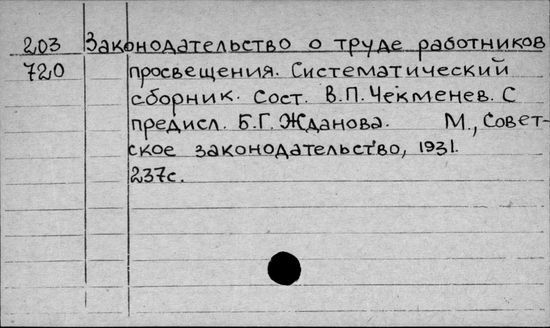 203 Законодательство о труде работников
720 просвещения. Систематический
сборник. Сост. В.П. Чекменев. С
предисл. Б.Г. Жданова. М., Совет-
ское законодательство, 1931.
237с.